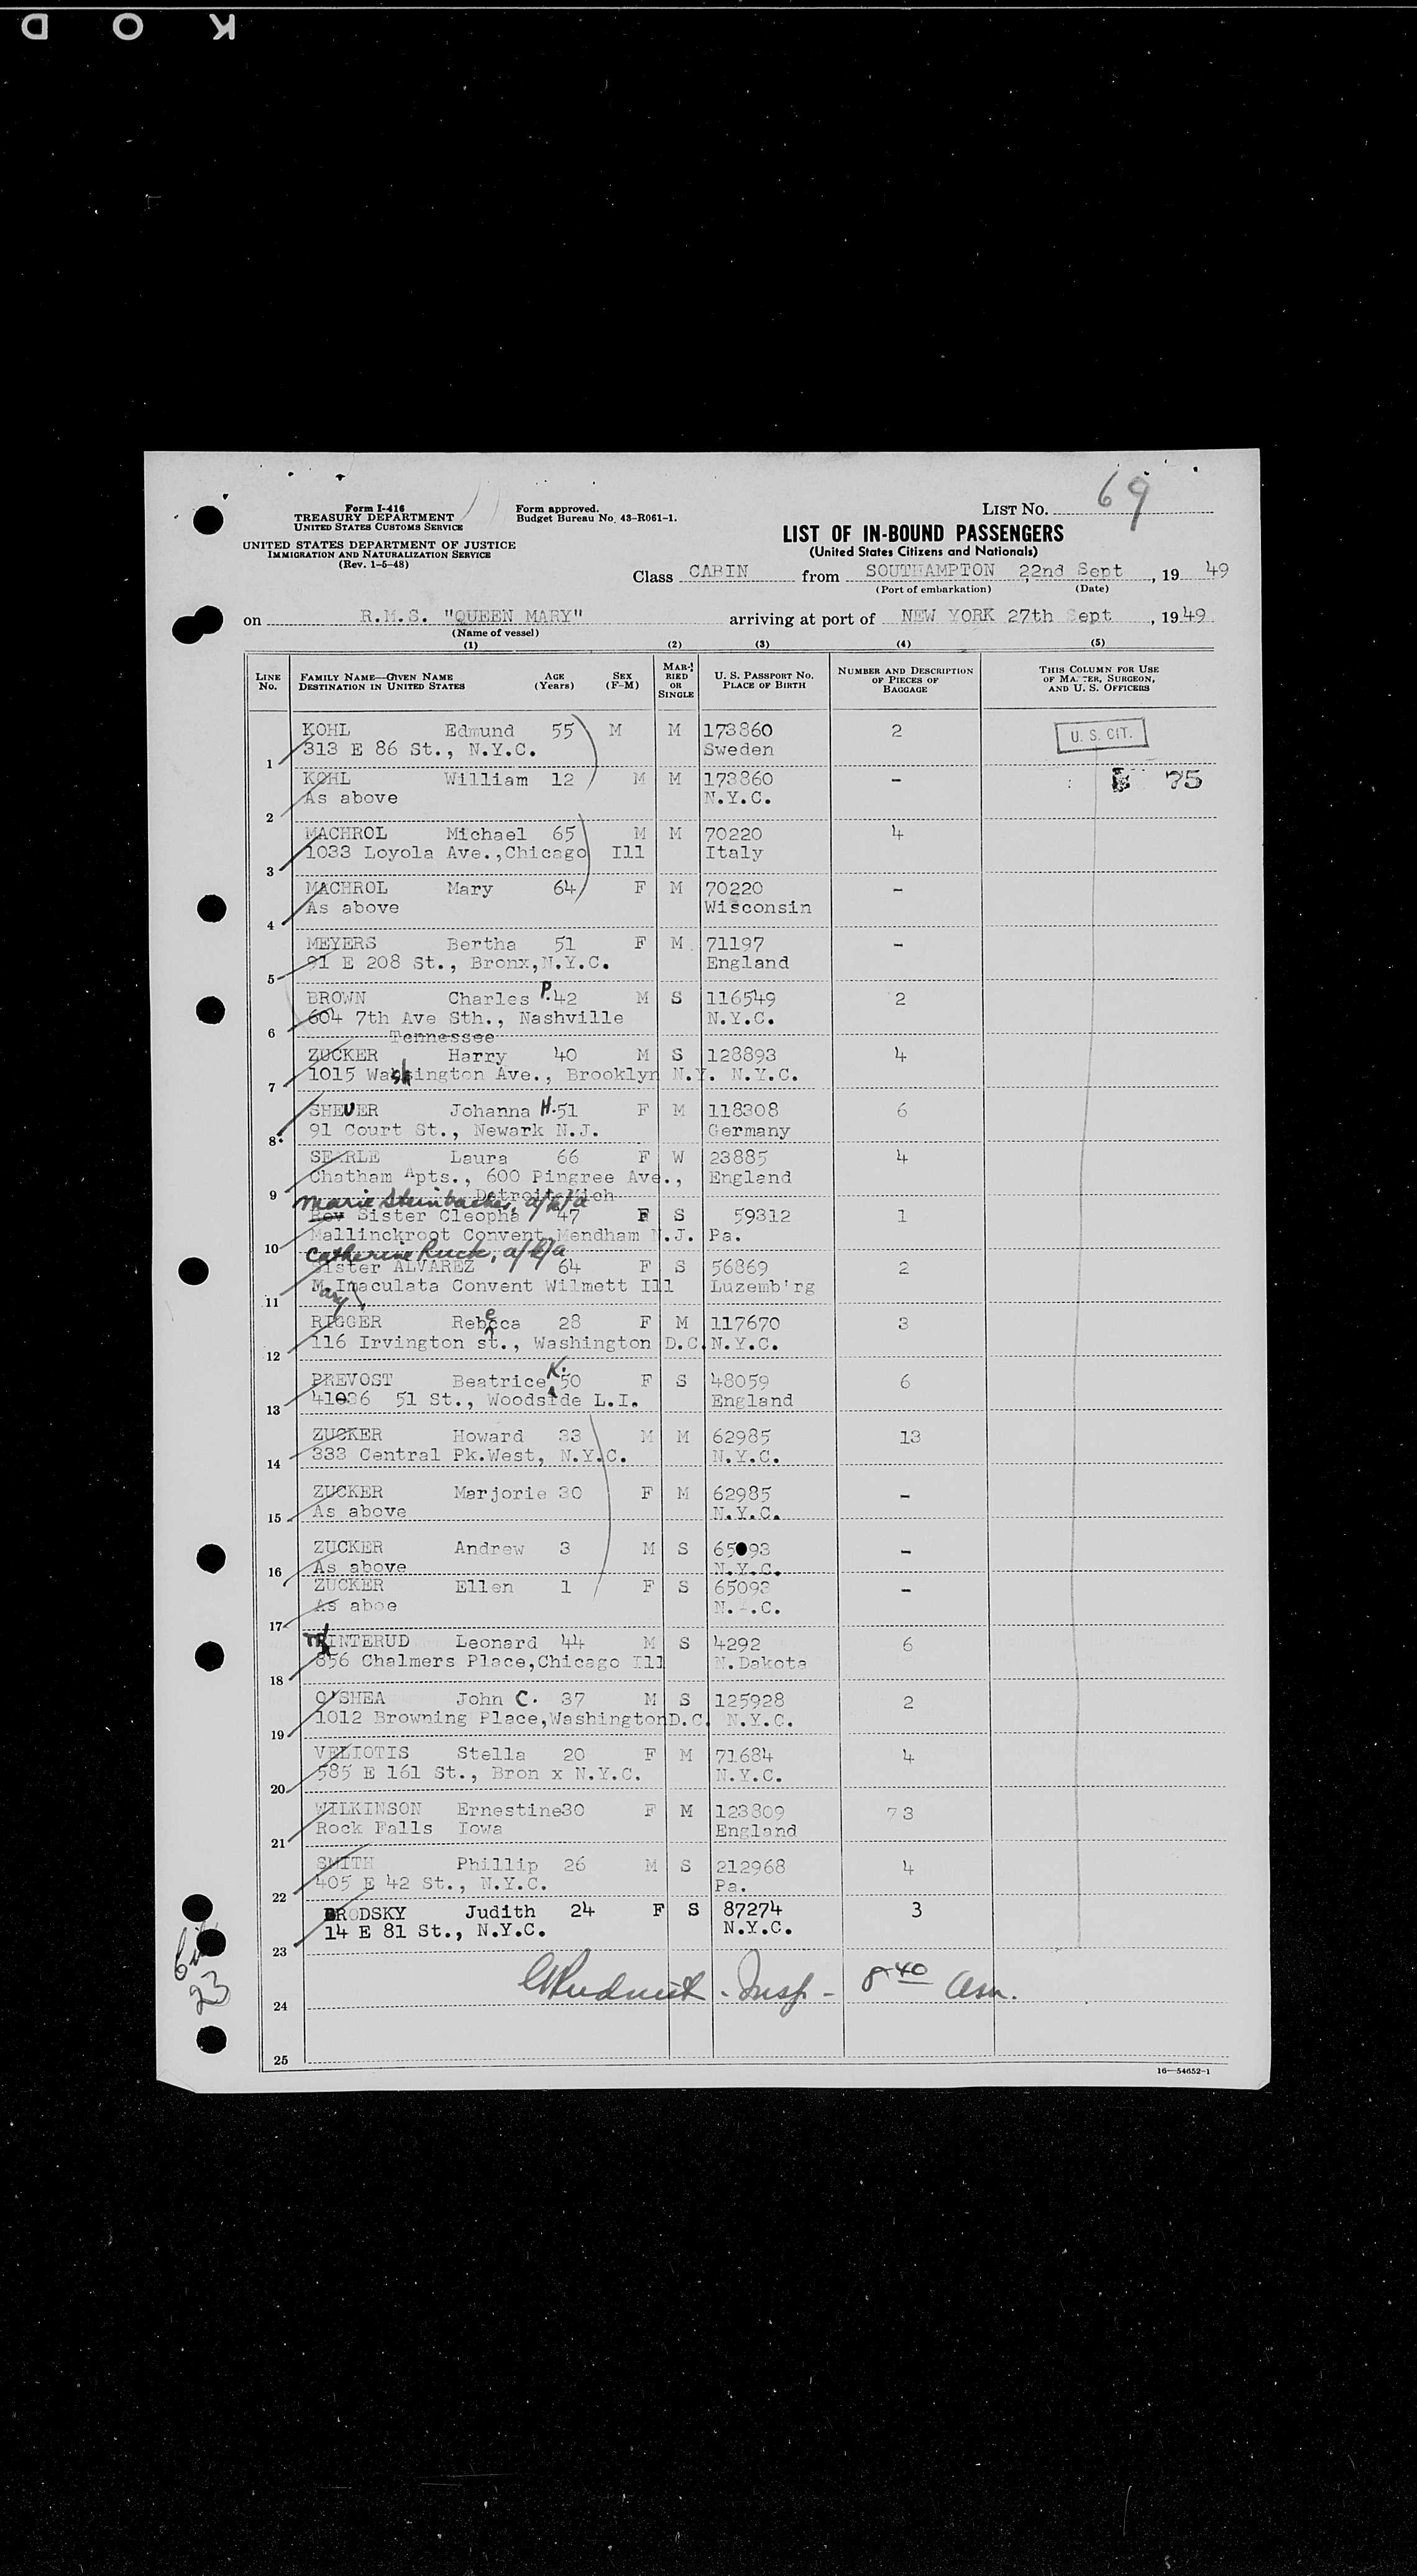 K O D
69
Form I-416
TREASURY DEPARTMENT
UNITED STATES CUSTOMS SERVICE
UNITED STATES DEPARTMENT OF JUSTICE
IMMIGRATION AND NATURALIZATION SERVICE
(Rev. 1-5-48)
Form approved.
Budget Bureau No. 43-R061-1.
LIST NO.
LIST OF IN-BOUND PASSENGERS
(United States Citizens and Nationals)
Class CABIN from SOUTHAMPTON 22nd Sept, 19 49
(Port of embarkation) (Date)
on R.M.S. "QUEEN MARY" arriving at port of NEW YORK 27th Sept, 19 49
(Name of vessel)
(1) (2) (3) (4) (5)
LINE NO. FAMILY NAME—GIVEN NAME DESTINATION IN UNITED STATES AGE (Years) SEX (F-M) MARRIED OR SINGLE U. S. PASSPORT NO. PLACE OF BIRTH NUMBER AND DESCRIPTION OF PIECES OF BAGGAGE THIS COLUMN FOR USE OF MASTER, SURGEON, AND U. S. OFFICERS
KOHL Edmund 55 M M 173860 2 U. S. CIT.
1 313 E 86 St., N.Y.C. Sweden
KOHL William 12 M M 173860 - 75
2 As above N.Y.C.
MACHROL Michael 65 M M 70220 4
3 1033 Loyola Ave.,Chicago Ill Italy
MACHROL Mary 64 F M 70220 -
4 As above Wisconsin
MEYERS Bertha 51 F M 71197 -
5 91 E 208 St., Bronx,N.Y.C. England
BROWN Charles P. 42 M S 116549 2
6 604 7th Ave Sth., Nashville N.Y.C.
Tennessee
ZUCKER Harry 40 M S 128893 4
7 1015 Washington Ave., Brooklyn N.Y. N.Y.C.
SHEUER Johanna H. 51 F M 118308 6
8 91 Court St., Newark N.J. Germany
SEARLE Laura 66 F W 23885 4
9 Chatham Apts., 600 Pingree Ave., England
Detroit Mich
Marie Steinbacher, a/k/a
Rev Sister Cleopha 47 F S 59312 1
10 Mallinckroot Convent,Mendham N.J. Pa.
Catherine Ruck, a/k/a
Sister ALVAREZ 64 F S 56869 2
11 M. Imaculata Convent Wilmett Ill Luzemb'rg
Mary
RIGGER Rebecca 28 F M 117670 3
12 116 Irvington st., Washington D.C. N.Y.C.
PREVOST Beatrice K. 50 F S 48059 6
13 41036 51 St., Woodside L.I. England
ZUCKER Howard 33 M M 62985 13
14 333 Central Pk.West, N.Y.C. N.Y.C.
ZUCKER Marjorie 30 F M 62985 -
15 As above N.Y.C.
ZUCKER Andrew 3 M S 65093 -
16 As above N.Y.C.
ZUCKER Ellen 1 F S 65093 -
17 As aboe N.Y.C.
TRINTERUD Leonard 44 M S 4292 6
18 856 Chalmers Place,Chicago Ill N.Dakota
O'SHEA John C. 37 M S 125928 2
19 1012 Browning Place,Washington D.C. N.Y.C.
VELIOTIS Stella 20 F M 71684 4
20 585 E 161 St., Bron x N.Y.C. N.Y.C.
WILKINSON Ernestine 30 F M 123809 73
21 Rock Falls Iowa England
SMITH Phillip 26 M S 212968 4
22 405 E 42 St., N.Y.C. Pa.
BRODSKY Judith 24 F S 87274 3
23 14 E 81 St., N.Y.C. N.Y.C.
23
Insp - 8 40 am.
24
25
16—54652-1